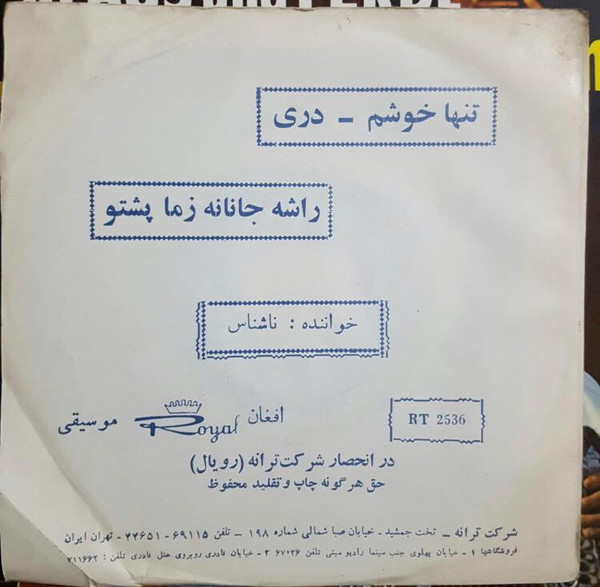 تنها خوشم ـ دری
راشه جانانه زما پشتو
خواننده : ناشناس
افغان Royal موسیقی
RT 2536
در انحصار شرکت ترانه (رویال)
حق هرگونه چاپ و تقلید محفوظ
شرکت ترانه ـ تخت جمشید ـ خیابان صبا شمالی شماره ۱۹۸ ـ تلفن ۶۹۱۱۵ ـ ۴۴۶۵۱ ـ تهران ایران
فروشگاهها ۱ ـ خیابان پهلوی جنب سینما رادیو سیتی تلفن ۶۷۰۲۶ ۲ ـ خیابان نادری روبروی هتل نادری تلفن : ۳۱۱۶۶۲